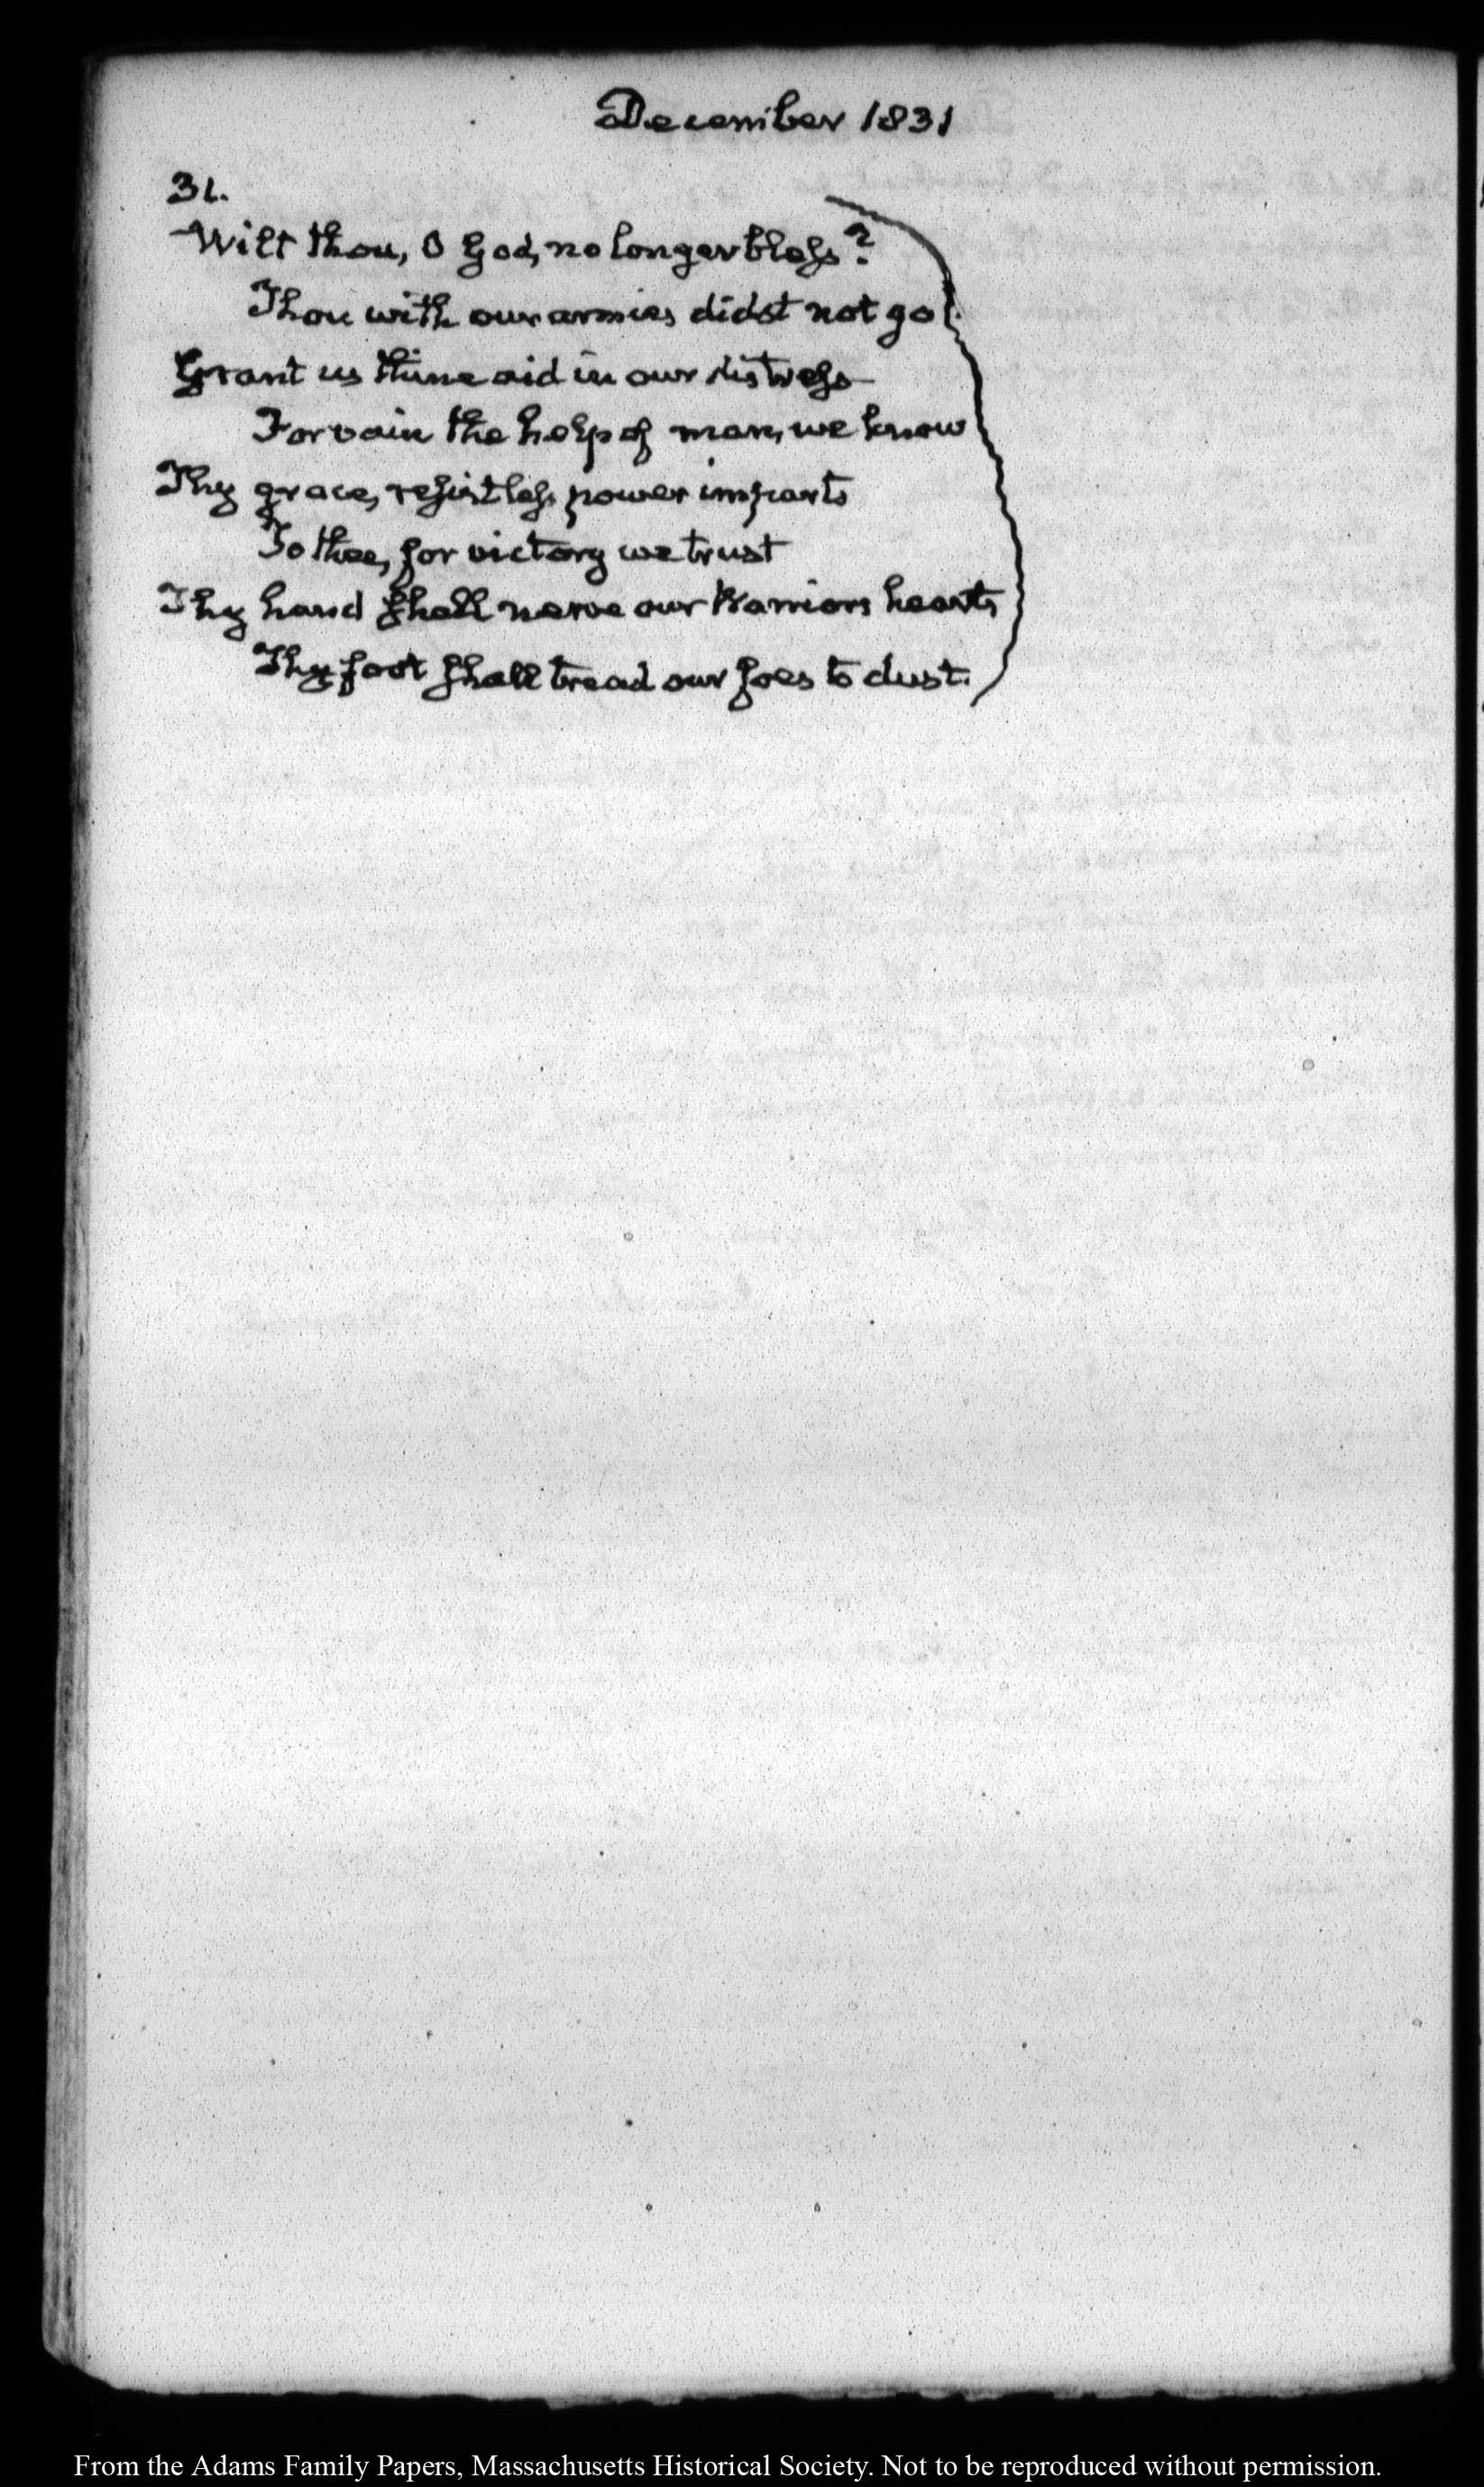 December 1831
31.
Wilt thou, O God, no longer bless?
Thou with our armies didst not go!
Grant us thine aid in our distress
For vain the help of man, we know
Thy grace, resistless power imparts
To thee, for victory we trust
Thy hand shall nerve our Warriors hearts
Thy foot shall tread our foes to dust.
From the Adams Family Papers, Massachusetts Historical Society. Not to be reproduced without permission.